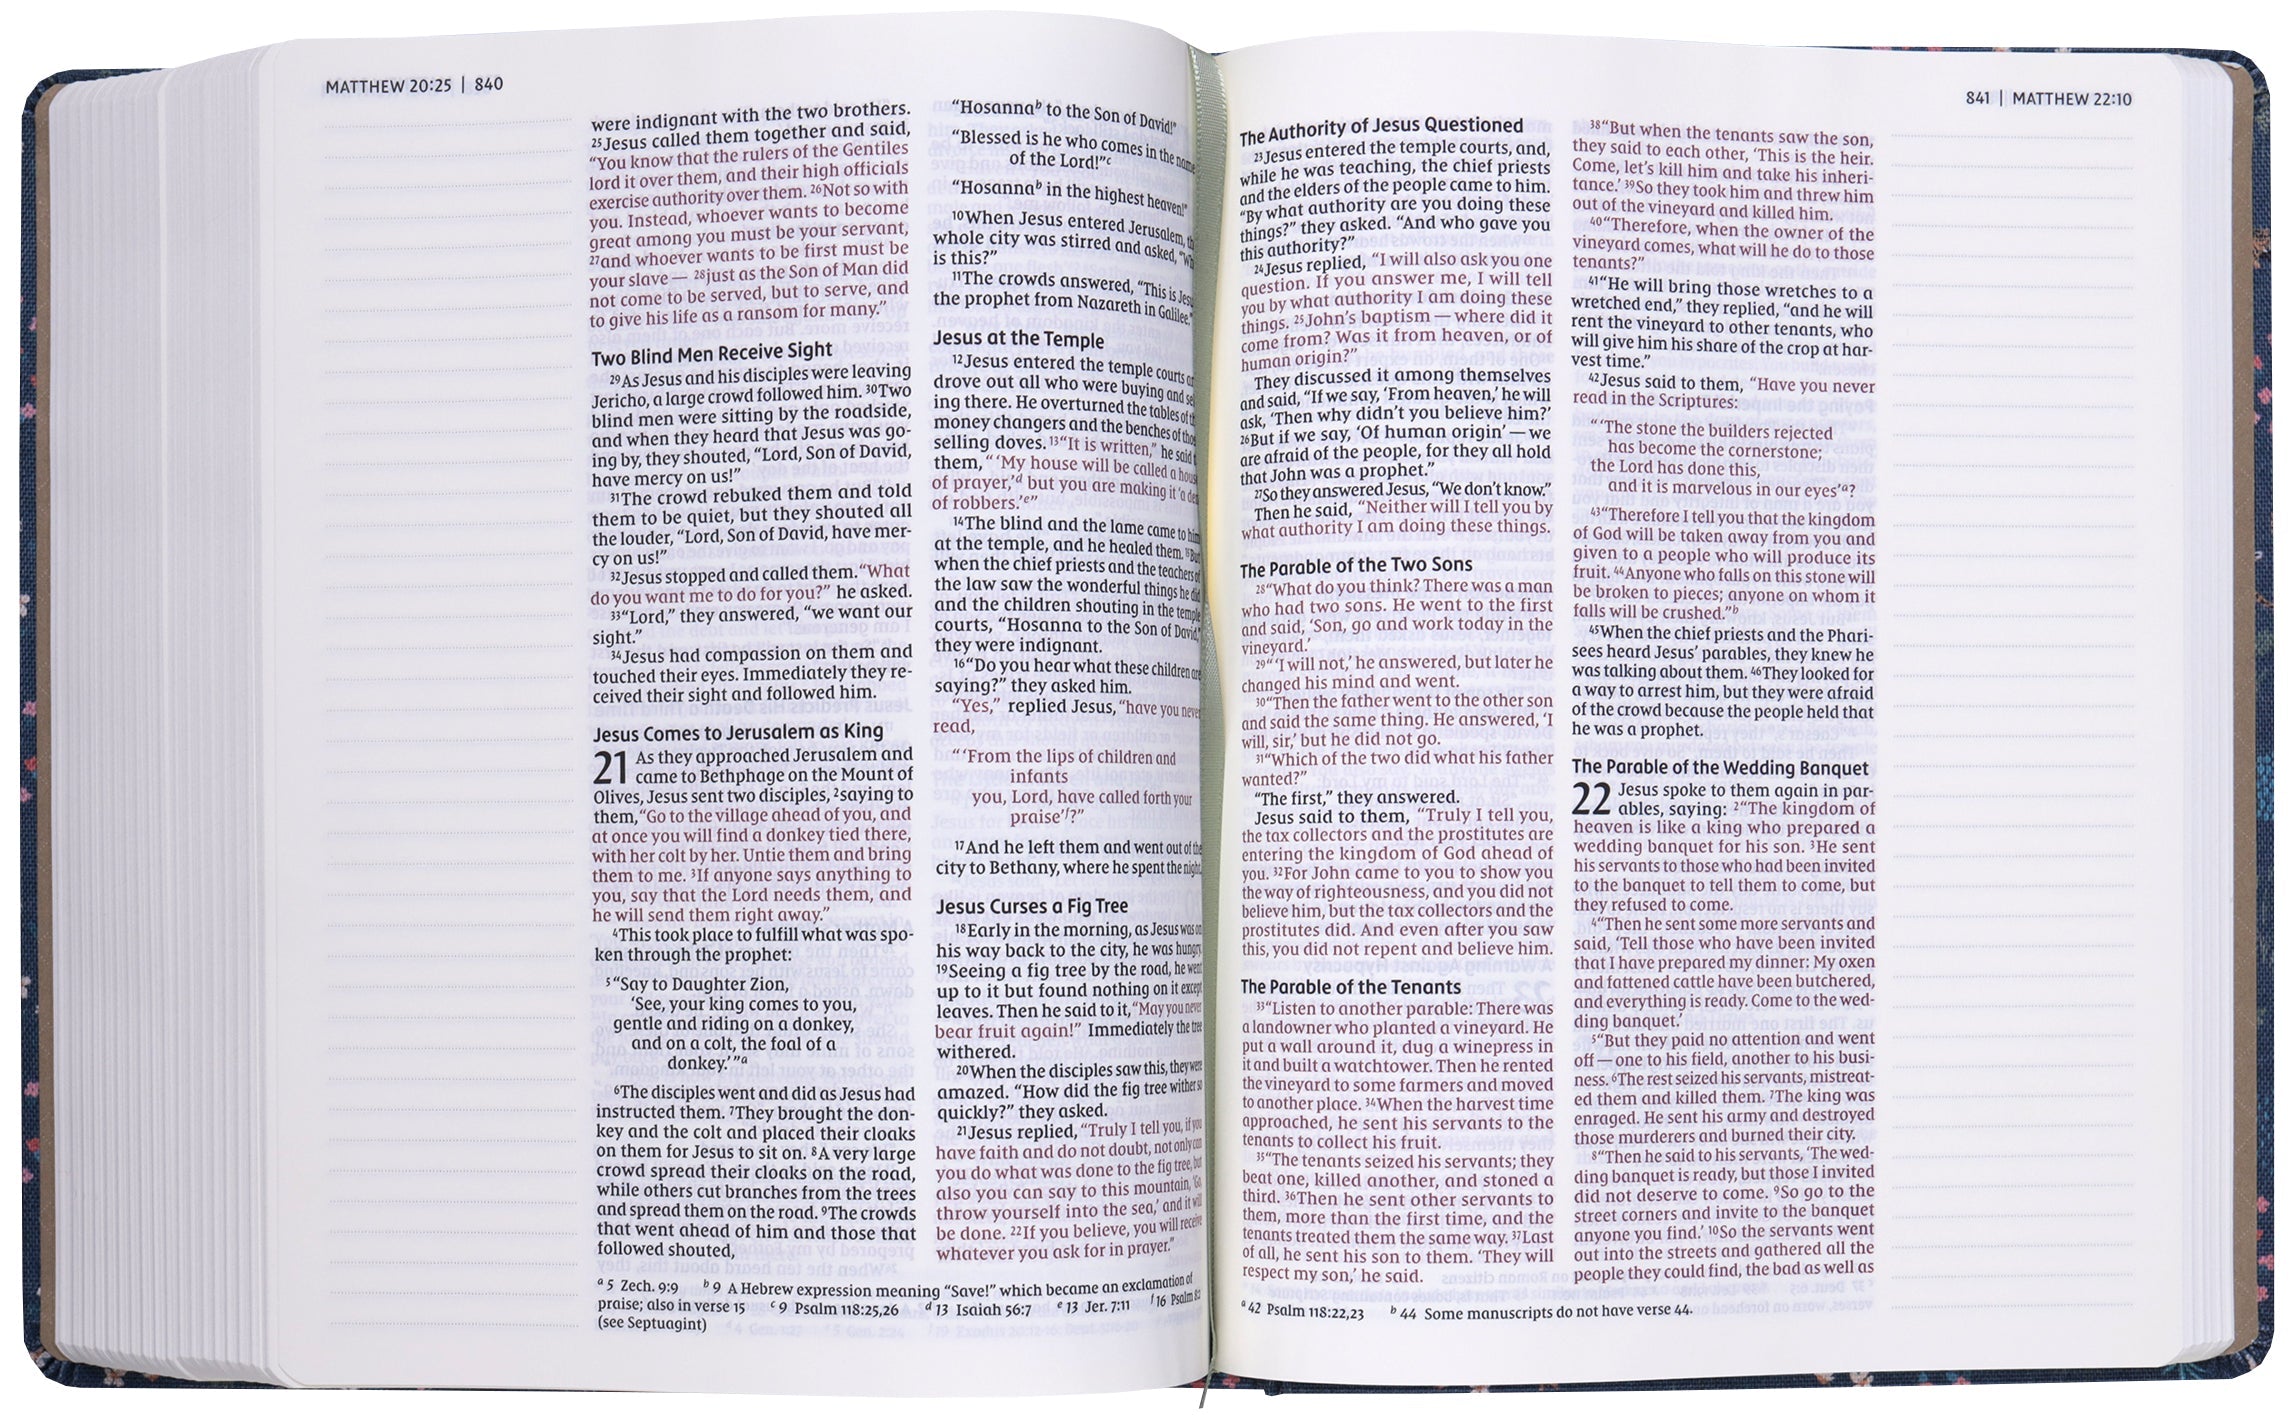 MATTHEW 20:25 | 840
were indignant with the two brothers.
25Jesus called them together and said,
“You know that the rulers of the Gentiles
lord it over them, and their high officials
exercise authority over them. 26Not so with
you. Instead, whoever wants to become
great among you must be your servant,
27and whoever wants to be first must be
your slave — 28just as the Son of Man did
not come to be served, but to serve, and
to give his life as a ransom for many.”
Two Blind Men Receive Sight
29As Jesus and his disciples were leaving
Jericho, a large crowd followed him. 30Two
blind men were sitting by the roadside,
and when they heard that Jesus was go-
ing by, they shouted, “Lord, Son of David,
have mercy on us!”
31The crowd rebuked them and told
them to be quiet, but they shouted all
the louder, “Lord, Son of David, have mer-
cy on us!”
32Jesus stopped and called them. “What
do you want me to do for you?” he asked.
33“Lord,” they answered, “we want our
sight.”
34Jesus had compassion on them and
touched their eyes. Immediately they re-
ceived their sight and followed him.
Jesus Comes to Jerusalem as King
21 As they approached Jerusalem and
came to Bethphage on the Mount of
Olives, Jesus sent two disciples, 2saying to
them, “Go to the village ahead of you, and
at once you will find a donkey tied there,
with her colt by her. Untie them and bring
them to me. 3If anyone says anything to
you, say that the Lord needs them, and
he will send them right away.”
4This took place to fulfill what was spo-
ken through the prophet:
5“Say to Daughter Zion,
‘See, your king comes to you,
gentle and riding on a donkey,
and on a colt, the foal of a
donkey.’”a
6The disciples went and did as Jesus had
instructed them. 7They brought the don-
key and the colt and placed their cloaks
on them for Jesus to sit on. 8A very large
crowd spread their cloaks on the road,
while others cut branches from the trees
and spread them on the road. 9The crowds
that went ahead of him and those that
followed shouted,
“Hosannab to the Son of David!”
“Blessed is he who comes in the name
of the Lord!”c
“Hosannab in the highest heaven!”
10When Jesus entered Jerusalem,
whole city was stirred and asked,
is this?”
11The crowds answered, “This is
the prophet from Nazareth in Galilee.”
Jesus at the Temple
12Jesus entered the temple courts
drove out all who were buying and
ing there. He overturned the tables of
money changers and the benches of
selling doves. 13“It is written,” he said
them, “‘My house will be called a house
of prayer,’d but you are making it ‘a
of robbers.’e”
14The blind and the lame came to him
at the temple, and he healed them. 15But
when the chief priests and the teachers of
the law saw the wonderful things he did
and the children shouting in the temple
courts, “Hosanna to the Son of David,”
they were indignant.
16“Do you hear what these children are
saying?” they asked him.
“Yes,” replied Jesus, “have you never
read,
“‘From the lips of children and
infants
you, Lord, have called forth your
praise’f?”
17And he left them and went out of the
city to Bethany, where he spent the night.
Jesus Curses a Fig Tree
18Early in the morning, as Jesus was on
his way back to the city, he was hungry.
19Seeing a fig tree by the road, he went
up to it but found nothing on it except
leaves. Then he said to it, “May you never
bear fruit again!” Immediately the tree
withered.
20When the disciples saw this, they were
amazed. “How did the fig tree wither so
quickly?” they asked.
21Jesus replied, “Truly I tell you, if you
have faith and do not doubt, not only can
you do what was done to the fig tree, but
also you can say to this mountain, ‘Go,
throw yourself into the sea,’ and it will
be done. 22If you believe, you will receive
whatever you ask for in prayer.”
a 5 Zech. 9:9 b 9 A Hebrew expression meaning “Save!” which became an exclamation of
praise; also in verse 15 c 9 Psalm 118:25,26 d 13 Isaiah 56:7 e 13 Jer. 7:11 f 16 Psalm 8:2
(see Septuagint)
841 | MATTHEW 22:10
The Authority of Jesus Questioned
23Jesus entered the temple courts, and,
while he was teaching, the chief priests
and the elders of the people came to him.
“By what authority are you doing these
things?” they asked. “And who gave you
this authority?”
24Jesus replied, “I will also ask you one
question. If you answer me, I will tell
you by what authority I am doing these
things. 25John’s baptism — where did it
come from? Was it from heaven, or of
human origin?”
They discussed it among themselves
and said, “If we say, ‘From heaven,’ he will
ask, ‘Then why didn’t you believe him?’
26But if we say, ‘Of human origin’ — we
are afraid of the people, for they all hold
that John was a prophet.”
27So they answered Jesus, “We don’t know.”
Then he said, “Neither will I tell you by
what authority I am doing these things.
The Parable of the Two Sons
28“What do you think? There was a man
who had two sons. He went to the first
and said, ‘Son, go and work today in the
vineyard.’
29“‘I will not,’ he answered, but later he
changed his mind and went.
30“Then the father went to the other son
and said the same thing. He answered, ‘I
will, sir,’ but he did not go.
31“Which of the two did what his father
wanted?”
“The first,” they answered.
Jesus said to them, “Truly I tell you,
the tax collectors and the prostitutes are
entering the kingdom of God ahead of
you. 32For John came to you to show you
the way of righteousness, and you did not
believe him, but the tax collectors and the
prostitutes did. And even after you saw
this, you did not repent and believe him.
The Parable of the Tenants
33“Listen to another parable: There was
a landowner who planted a vineyard. He
put a wall around it, dug a winepress in
it and built a watchtower. Then he rented
the vineyard to some farmers and moved
to another place. 34When the harvest time
approached, he sent his servants to the
tenants to collect his fruit.
35“The tenants seized his servants; they
beat one, killed another, and stoned a
third. 36Then he sent other servants to
them, more than the first time, and the
tenants treated them the same way. 37Last
of all, he sent his son to them. ‘They will
respect my son,’ he said.
38“But when the tenants saw the son,
they said to each other, ‘This is the heir.
Come, let’s kill him and take his inheri-
tance.’ 39So they took him and threw him
out of the vineyard and killed him.
40“Therefore, when the owner of the
vineyard comes, what will he do to those
tenants?”
41“He will bring those wretches to a
wretched end,” they replied, “and he will
rent the vineyard to other tenants, who
will give him his share of the crop at har-
vest time.”
42Jesus said to them, “Have you never
read in the Scriptures:
“‘The stone the builders rejected
has become the cornerstone;
the Lord has done this,
and it is marvelous in our eyes’a?
43“Therefore I tell you that the kingdom
of God will be taken away from you and
given to a people who will produce its
fruit. 44Anyone who falls on this stone will
be broken to pieces; anyone on whom it
falls will be crushed.”b
45When the chief priests and the Phari-
sees heard Jesus’ parables, they knew he
was talking about them. 46They looked for
a way to arrest him, but they were afraid
of the crowd because the people held that
he was a prophet.
The Parable of the Wedding Banquet
22 Jesus spoke to them again in par-
ables, saying: 2“The kingdom of
heaven is like a king who prepared a
wedding banquet for his son. 3He sent
his servants to those who had been invited
to the banquet to tell them to come, but
they refused to come.
4“Then he sent some more servants and
said, ‘Tell those who have been invited
that I have prepared my dinner: My oxen
and fattened cattle have been butchered,
and everything is ready. Come to the wed-
ding banquet.’
5“But they paid no attention and went
off — one to his field, another to his busi-
ness. 6The rest seized his servants, mistreat-
ed them and killed them. 7The king was
enraged. He sent his army and destroyed
those murderers and burned their city.
8“Then he said to his servants, ‘The wed-
ding banquet is ready, but those I invited
did not deserve to come. 9So go to the
street corners and invite to the banquet
anyone you find.’ 10So the servants went
out into the streets and gathered all the
people they could find, the bad as well as
a 42 Psalm 118:22,23 b 44 Some manuscripts do not have verse 44.